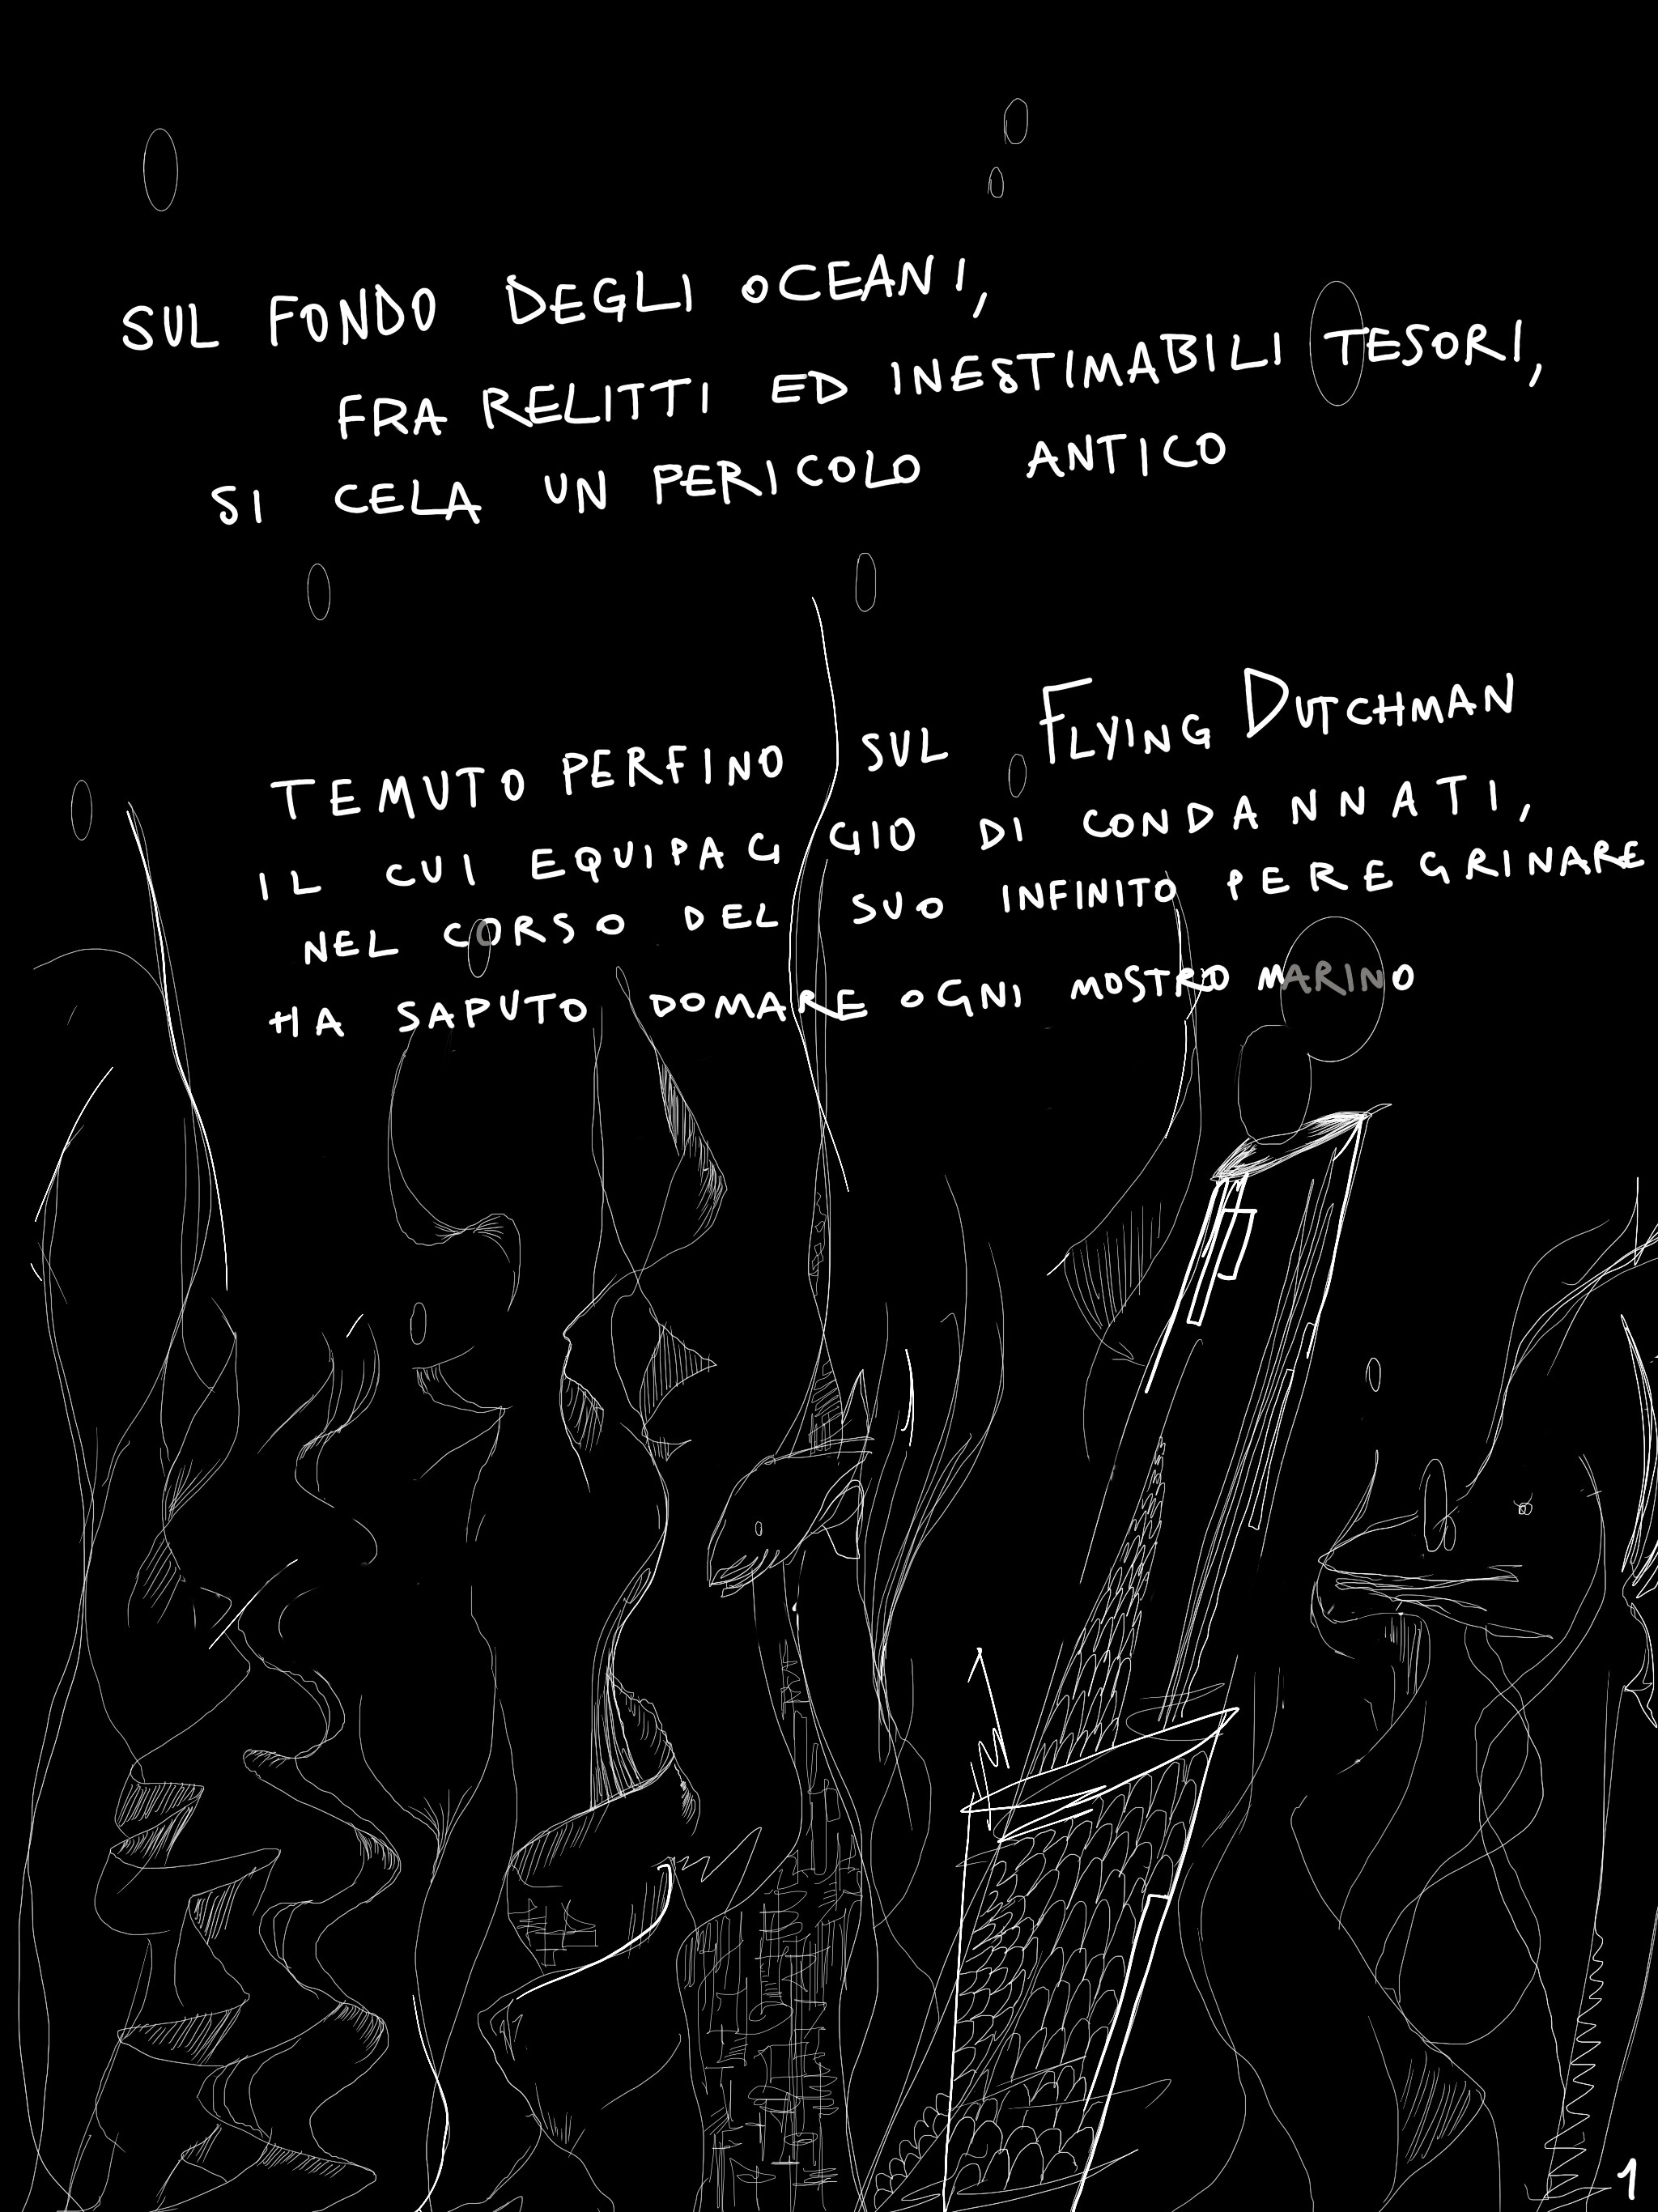 SUL FONDO DEGLI OCEANI,
FRA RELITTI ED INESTIMABILI TESORI,
SI CELA UN PERICOLO ANTICO
TEMUTO PERFINO SUL FLYING DUTCHMAN
IL CUI EQUIPAGGIO DI CONDANNATI,
NEL CORSO DEL SUO INFINITO PEREGRINARE
HA SAPUTO DOMARE OGNI MOSTRO MARINO
1